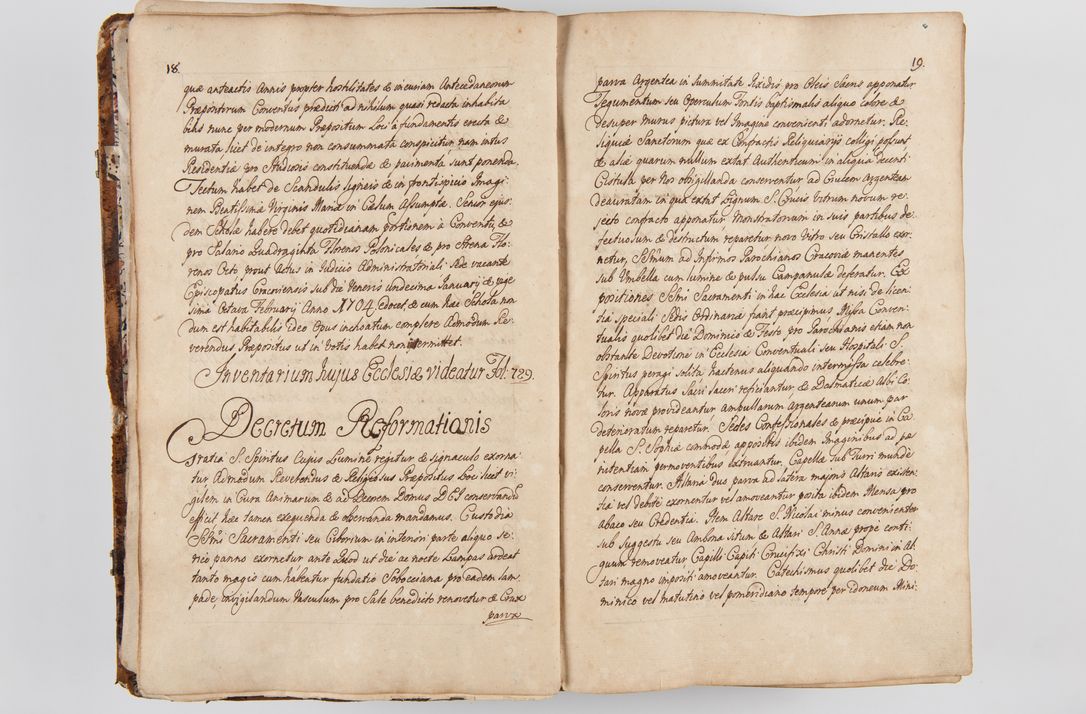 18.
quæ anteactis Annis propter hostilitates & incuriam Antecedaneorum
Præpositorum Conventus prædicti ad nihilum quasi redacta inhabita
bilis nunc per modernum Præpositum Loci à fundamentis erecta &
murata licet de integro non consummata conspicitur nam intus
Residentiæ pro Studiosis constituendæ & pavimenta sunt ponenda.
Tectum habet de Scandulis ligneis & in frontispicio Imagi:
nem Beatissimæ Virginis Mariæ in Cælum Assumptæ. Senior ejus:
dem Scholæ habere debet quotidianam portionem à Conventu, &
pro Salario Quadraginta Florenos Polonicales & pro Strena Flo:
renos Octo prout Actus in Judicio Administratoriali Sede vacante
Episcopatus Cracoviensis sub die Veneris Undecima January & vige
sima Octava February Anno 1704. edocet, & cum hæc Schola non
dum est habitabilis Ideo Opus inchoatum complere Admodum Re:
verendus Præpositus ut in Votis habet non intermittet.
Inventarium hujus Ecclesiæ videatur Fol: 729.
Decretum Reformationis
Gratia S. Spiritus Cujus Lumine regitur & signaculo exorna:
tur Admodum Reverendus & Religiosus Præpositus Loci licet vi:
gilem in Cura Animarum & ad Decorem Domus DEI conservando
efficit hæc tamen exequenda & observanda mandamus. Custodia
SSmi Sacramenti seu Ciborium in interiori parte aliquo se:
rico panno exornetur ante Quod ut die ac nocte Lampas ardeat
tanto magis cum habeatur fundatio Sobocciana pro eadem lam
pade, invigilandum Vasculum pro Sale benedicto renovetur & Crux
parva
19.
parva Argentea in Summitate Pixidis pro Oleis Sacris apponatur
Tegumentum seu Operculum Fontis baptismalis aliquo colore &
desuper murus pictura vel Imagine convenienti adornetur. Re:
liquiæ Sanctorum quæ ex Confractis Reliquiariis colligi possunt
& aliæ quarum nullum extat Authenticum in aliqua decenti
Cistula per Nos obsigillanda conserventur ad Crucem Argenteam
deauratam in qua extat Lignum S. Crucis Vitrum novum re:
jecto confracto apponatur Monstratorium in suis partibus de:
fectuosum & destructum reparetur novo Vitro seu Cristallo exor:
netur, SSmum ad Infirmos Parochianos Cracoviæ manentes
sub Umbella cum lumine & pulsu Campanulæ deferatur. Ex:
positiones SSmi Sacramenti in hac Ecclesia ut nisi de licen:
tia speciali Sedis Ordinariæ fiant præcipimus Missa Conven:
tualis quolibet die Dominico & Festo pro Parochianis etiam non
obstante Devotione in Ecclesia Conventuali seu Hospitali S.
Spiritus peragi solita hactenus aliquando intermissa celebre:
tur. Apparatus Sacri laceri reficiantur & Dalmaticæ Albi Co:
loris novæ provideantur Ampullarum Argentearum unum par
deterioratum reparetur. Sedes Confessionales & præcipue in Ca:
pella S. Sophiæ commodæ appositis ibidem Imaginibus ad pæ
nitentiam permoventibus extruantur. Capella sub Turri munde
conserventur. Altaria duo parva ad latera majoris Altaris existen:
tia vel debite exornentur vel amoveantur posita ibidem Mensa pro
Abaco seu Credentia. Item Altare S. Nicolai minus convenienter
sub Suggestu seu Ambona situm & Altari S. Annæ propè conti:
guum removeatur Capilli Capiti Crucifixi Christi Domini in Al:
tari magno impositi amoveantur. Catechismus quolibet die Do:
minico vel matutino vel pomeridiano tempore per Idoneum Mini: